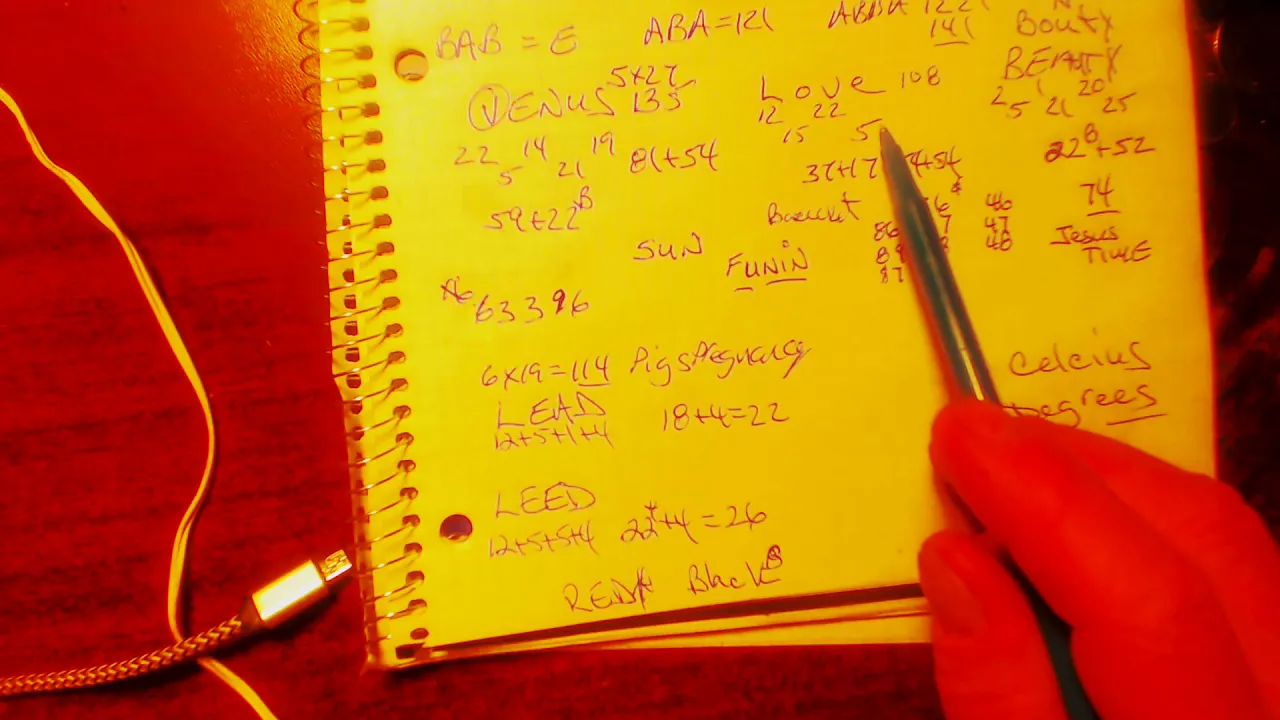 BAB = E
ABA=121
ABBA 1221
141
Bouty
BEAUTY
2 5 1 21 20 25
VENUS 5x27
135
22 5 14 21 19
81+54
59+22 B
Love 108
12 15 22 5
37+17
+54
22 B+52
74
Jesus
TIME
46
47
48
86
89
87
SUN
FUNIN
63396
6x19=114 Pigs Pregnancy
LEAD
12+5+1+4
18+4=22
Celcius
Degrees
LEED
12+5+5+4
22+4=26
RED Black B